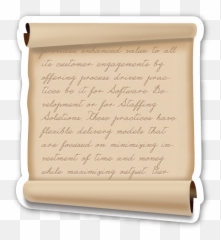 enhanced value to all
its customer engagements by
offering process driven prac-
tices be it for Software De-
velopment or for Staffing
Solutions. These practices have
flexible delivery models that
are focused on minimizing in-
vestment of time and money
while maximizing output. Our